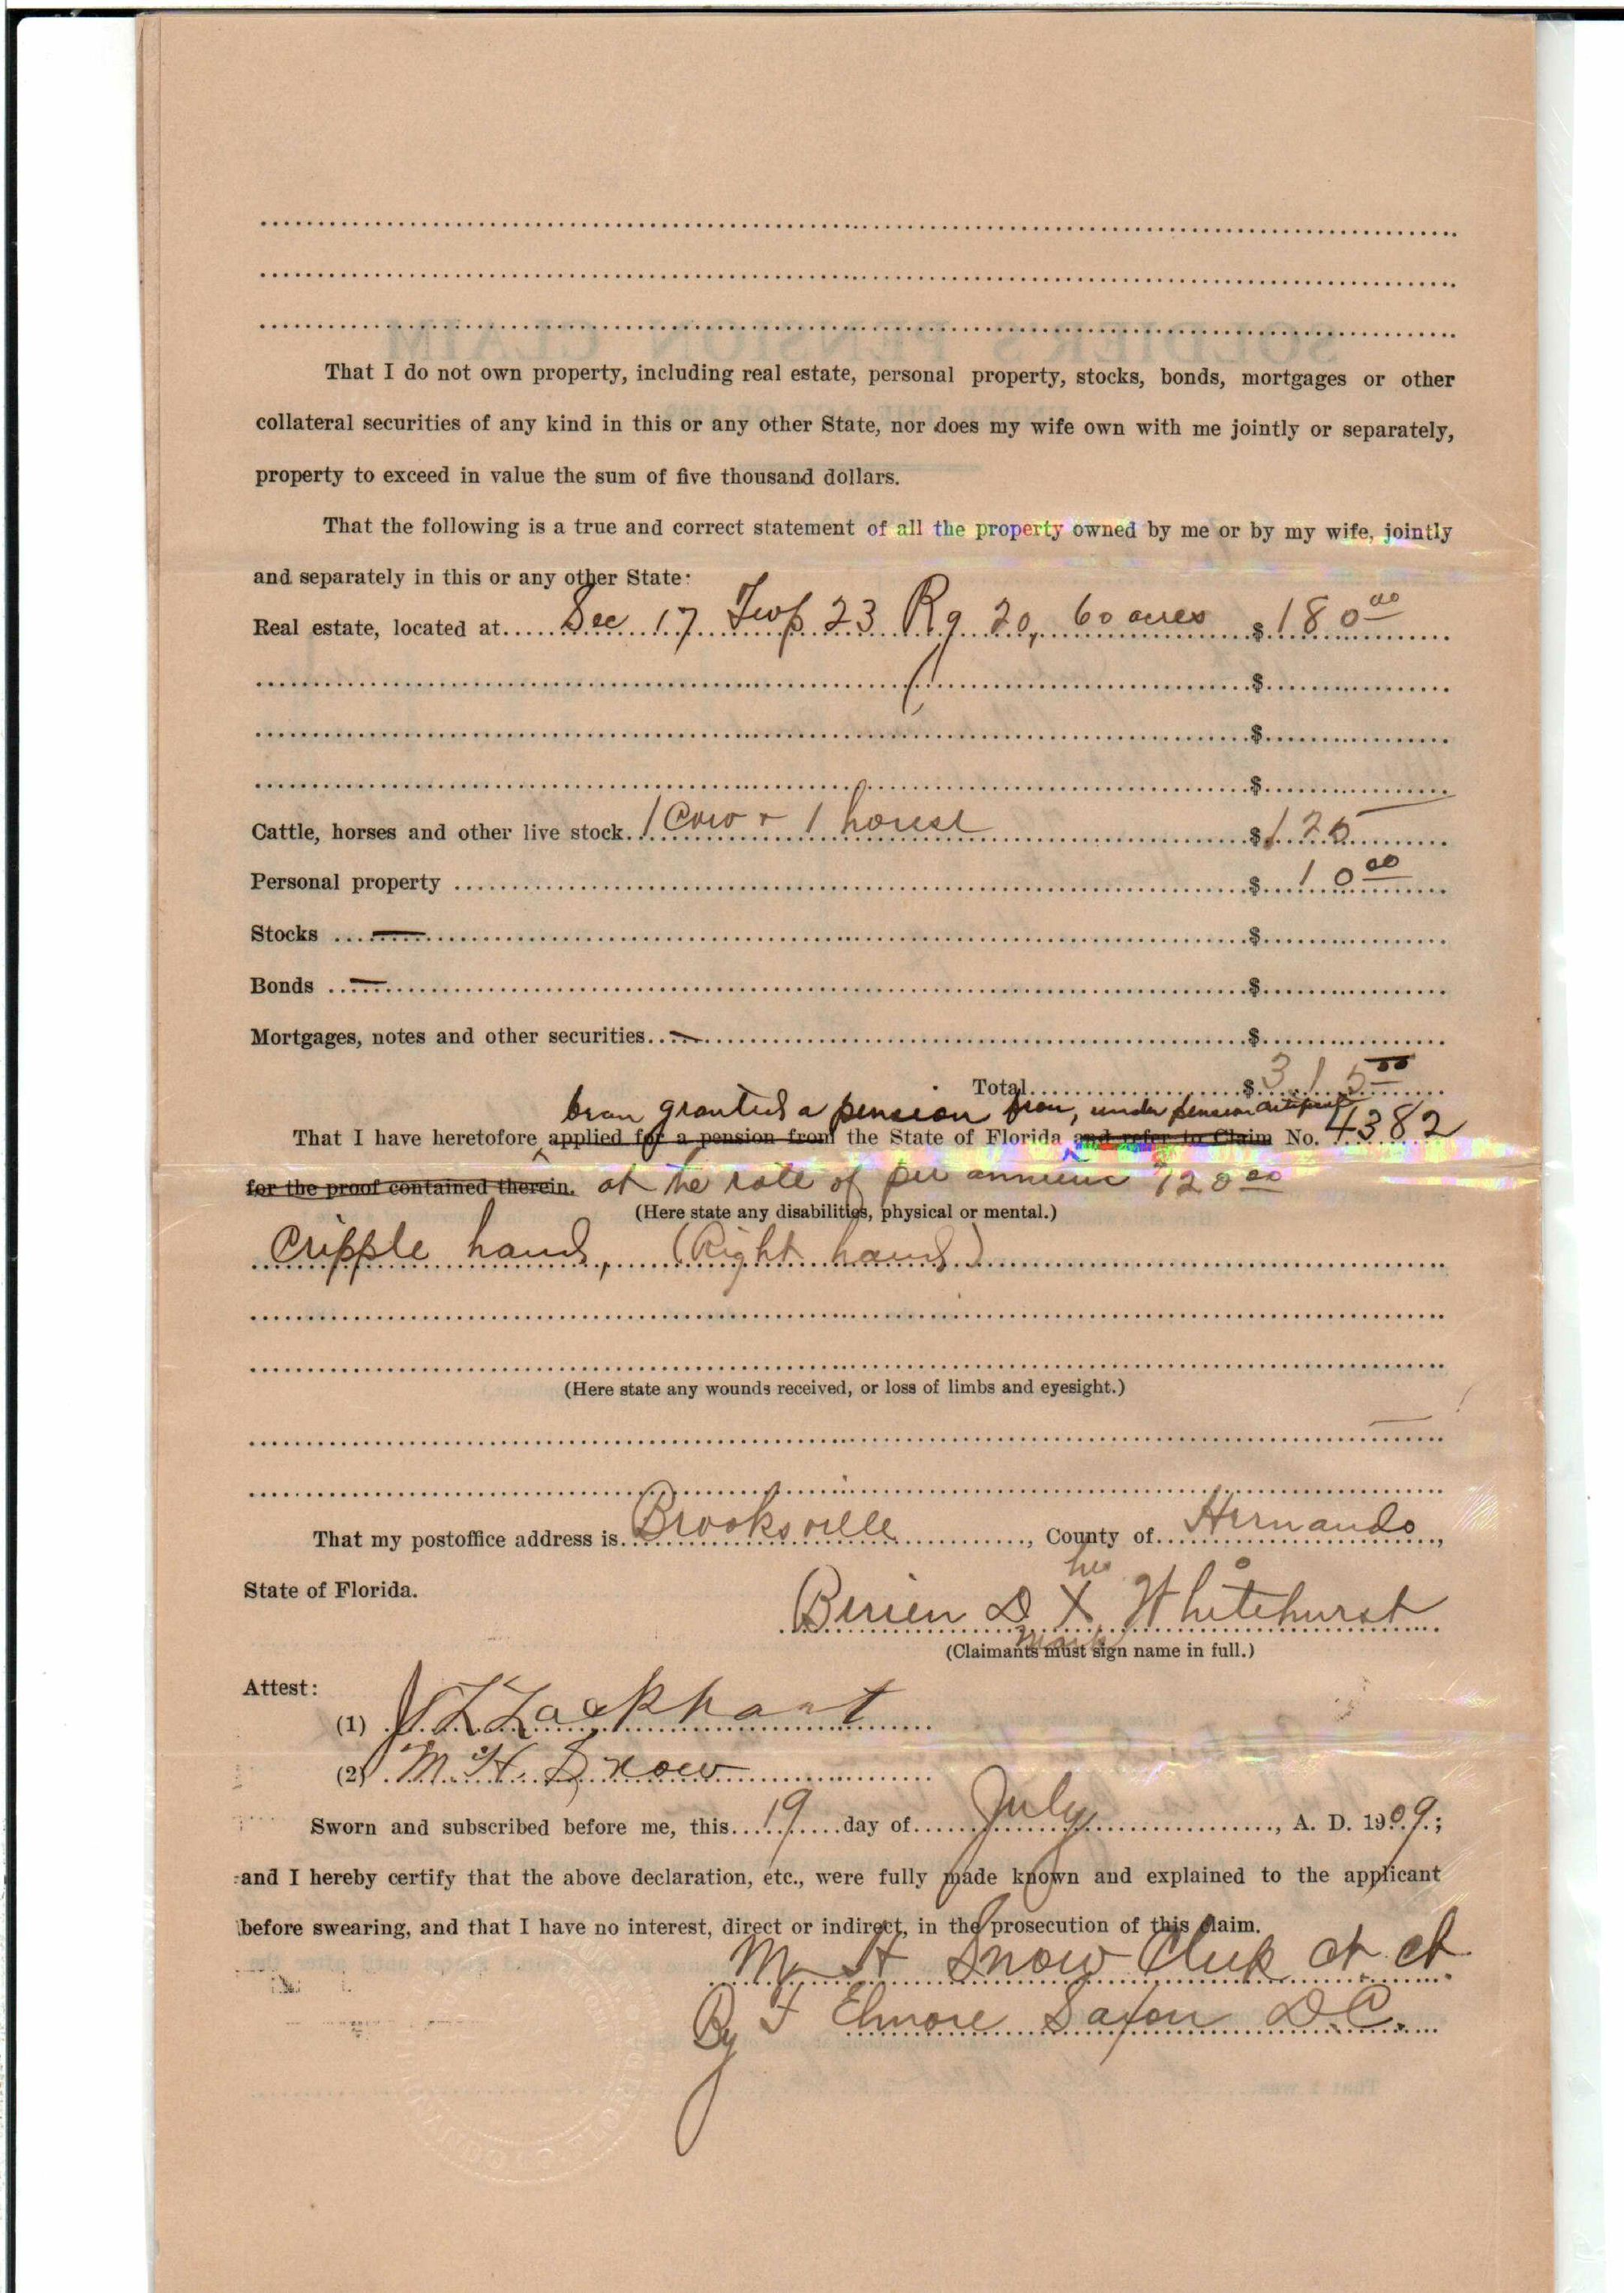 That I do not own property, including real estate, personal property, stocks, bonds, mortgages or other
collateral securities of any kind in this or any other State, nor does my wife own with me jointly or separately,
property to exceed in value the sum of five thousand dollars.
That the following is a true and correct statement of all the property owned by me or by my wife, jointly
and separately in this or any other State:
Real estate, located at Sec 17 Twp 23 Rg 20, 60 acres $ 180 00
$
$
$
Cattle, horses and other live stock 1 Cow + 1 horse $ 125
Personal property $ 10 00
Stocks — $
Bonds — $
Mortgages, notes and other securities — $
Total $ 315 00
been granted a pension from, under pension certificate
That I have heretofore applied for a pension from the State of Florida and refer to Claim No. 4382
for the proof contained therein. at the rate of per annum $120 00
(Here state any disabilities, physical or mental.)
Cripple hand, (Right hand)
(Here state any wounds received, or loss of limbs and eyesight.)
That my postoffice address is Brooksville, County of Hernando,
his
State of Florida. Berien D X Whitehurst
mark
(Claimants must sign name in full.)
Attest:
(1) J L Lockhart
(2) M. H. Snow
Sworn and subscribed before me, this 19 day of July, A. D. 1909;
and I hereby certify that the above declaration, etc., were fully made known and explained to the applicant
before swearing, and that I have no interest, direct or indirect, in the prosecution of this claim.
M H Snow Clerk ct ct
By F Elmore Saxon D.C.